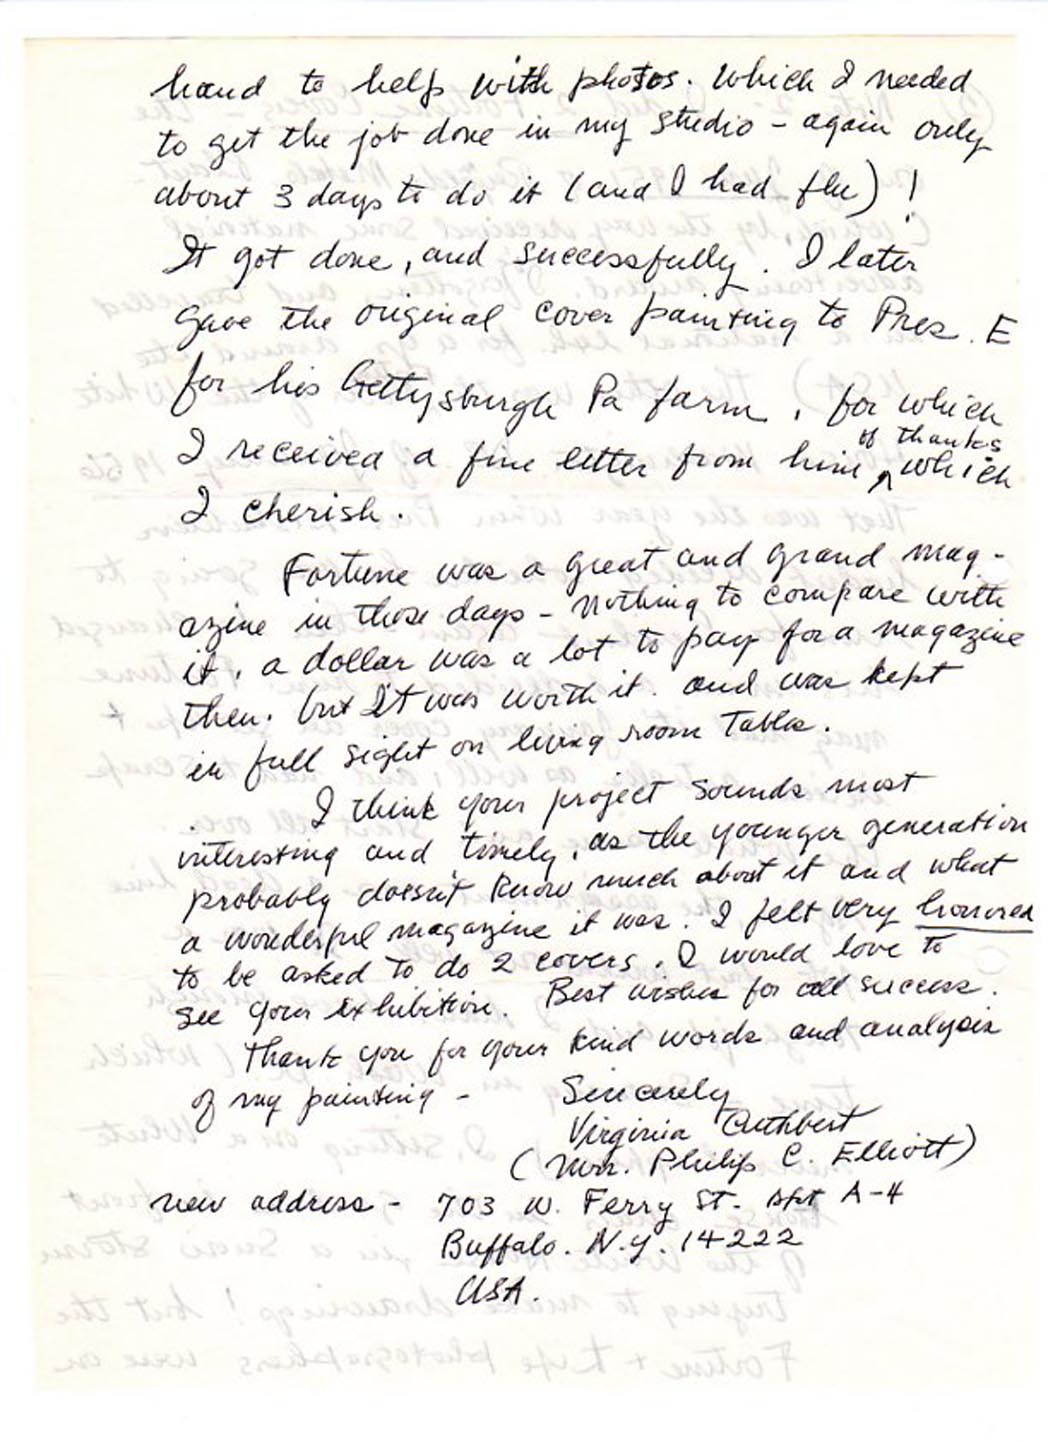 hand to help with photos. Which I needed
to get the job done in my studio - again only
about 3 days to do it (and I had flu) !
It got done, and successfully. I later
gave the original cover painting to Pres. E
for his Gettysburgh Pa farm, for which
of thanks
I received a fine letter from him ^ which
I cherish.
Fortune was a great and grand mag-
azine in those days - nothing to compare with
it, a dollar was a lot to pay for a magazine
then. but It was worth it. and was kept
in full sight on living room tables.
I think your project sounds most
interesting and timely, as the younger generation
probably doesn't know much about it and what
a wonderful magazine it was. I felt very honored
to be asked to do 2 covers. I would love to
see your exhibition. Best wishes for all success.
Thank you for your kind words and analysis
of my painting -
Sincerely
Virginia Cuthbert
(Mrs. Philip C. Elliott)
new address - 703 W. Ferry St. Apt A-4
Buffalo. N.Y. 14222
USA.